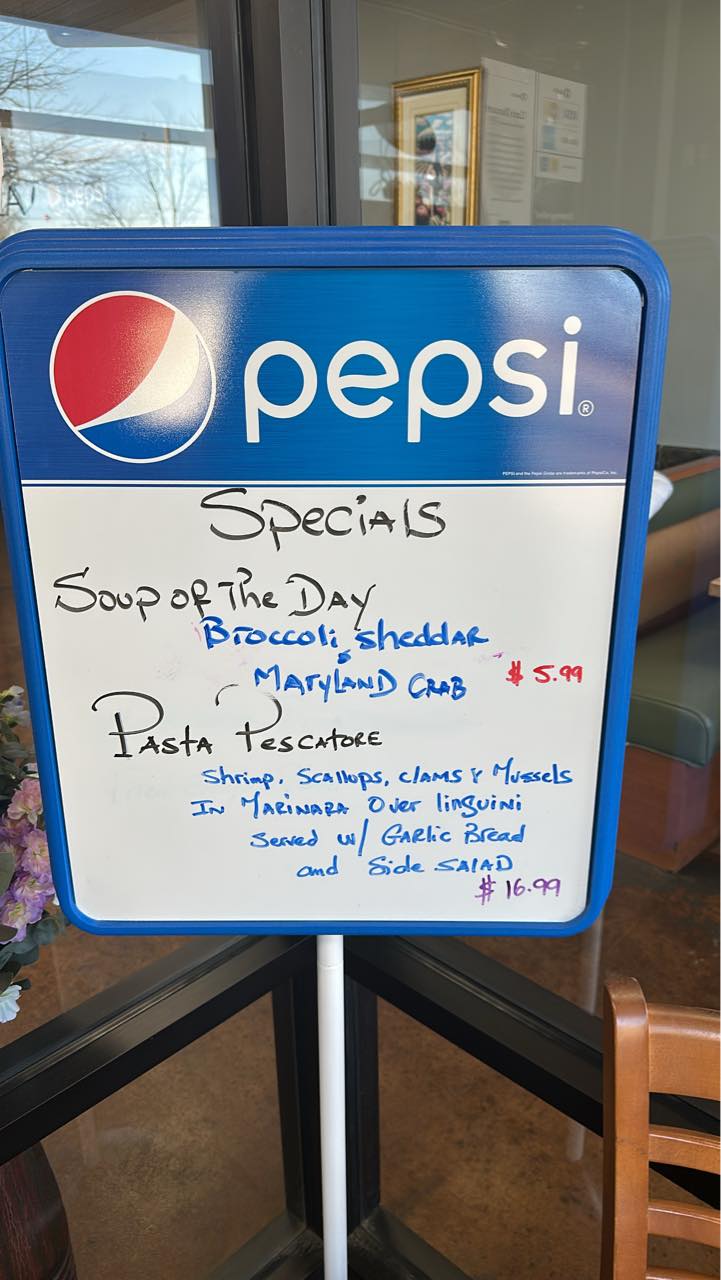 pepsi®
PEPSI and the Pepsi Globe are trademarks of PepsiCo, Inc.
Specials
Soup of The Day
Broccoli sheddar
&
Maryland Crab $5.99
Pasta Pescatore
Shrimp, Scallops, clams & Mussels
In Marinara Over linguini
Served w/ Garlic Bread
and Side Salad
$16.99